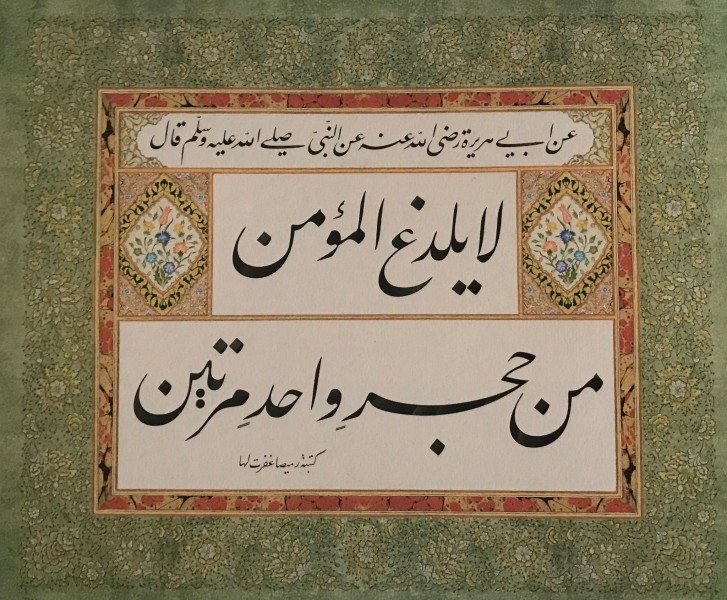 عن ابي هريرة رضى الله عنه عن النبي صلى الله عليه وسلم قال
لا يلدغ المؤمن
من جحر واحد مرتين
كتبته رميصا غفرت لها